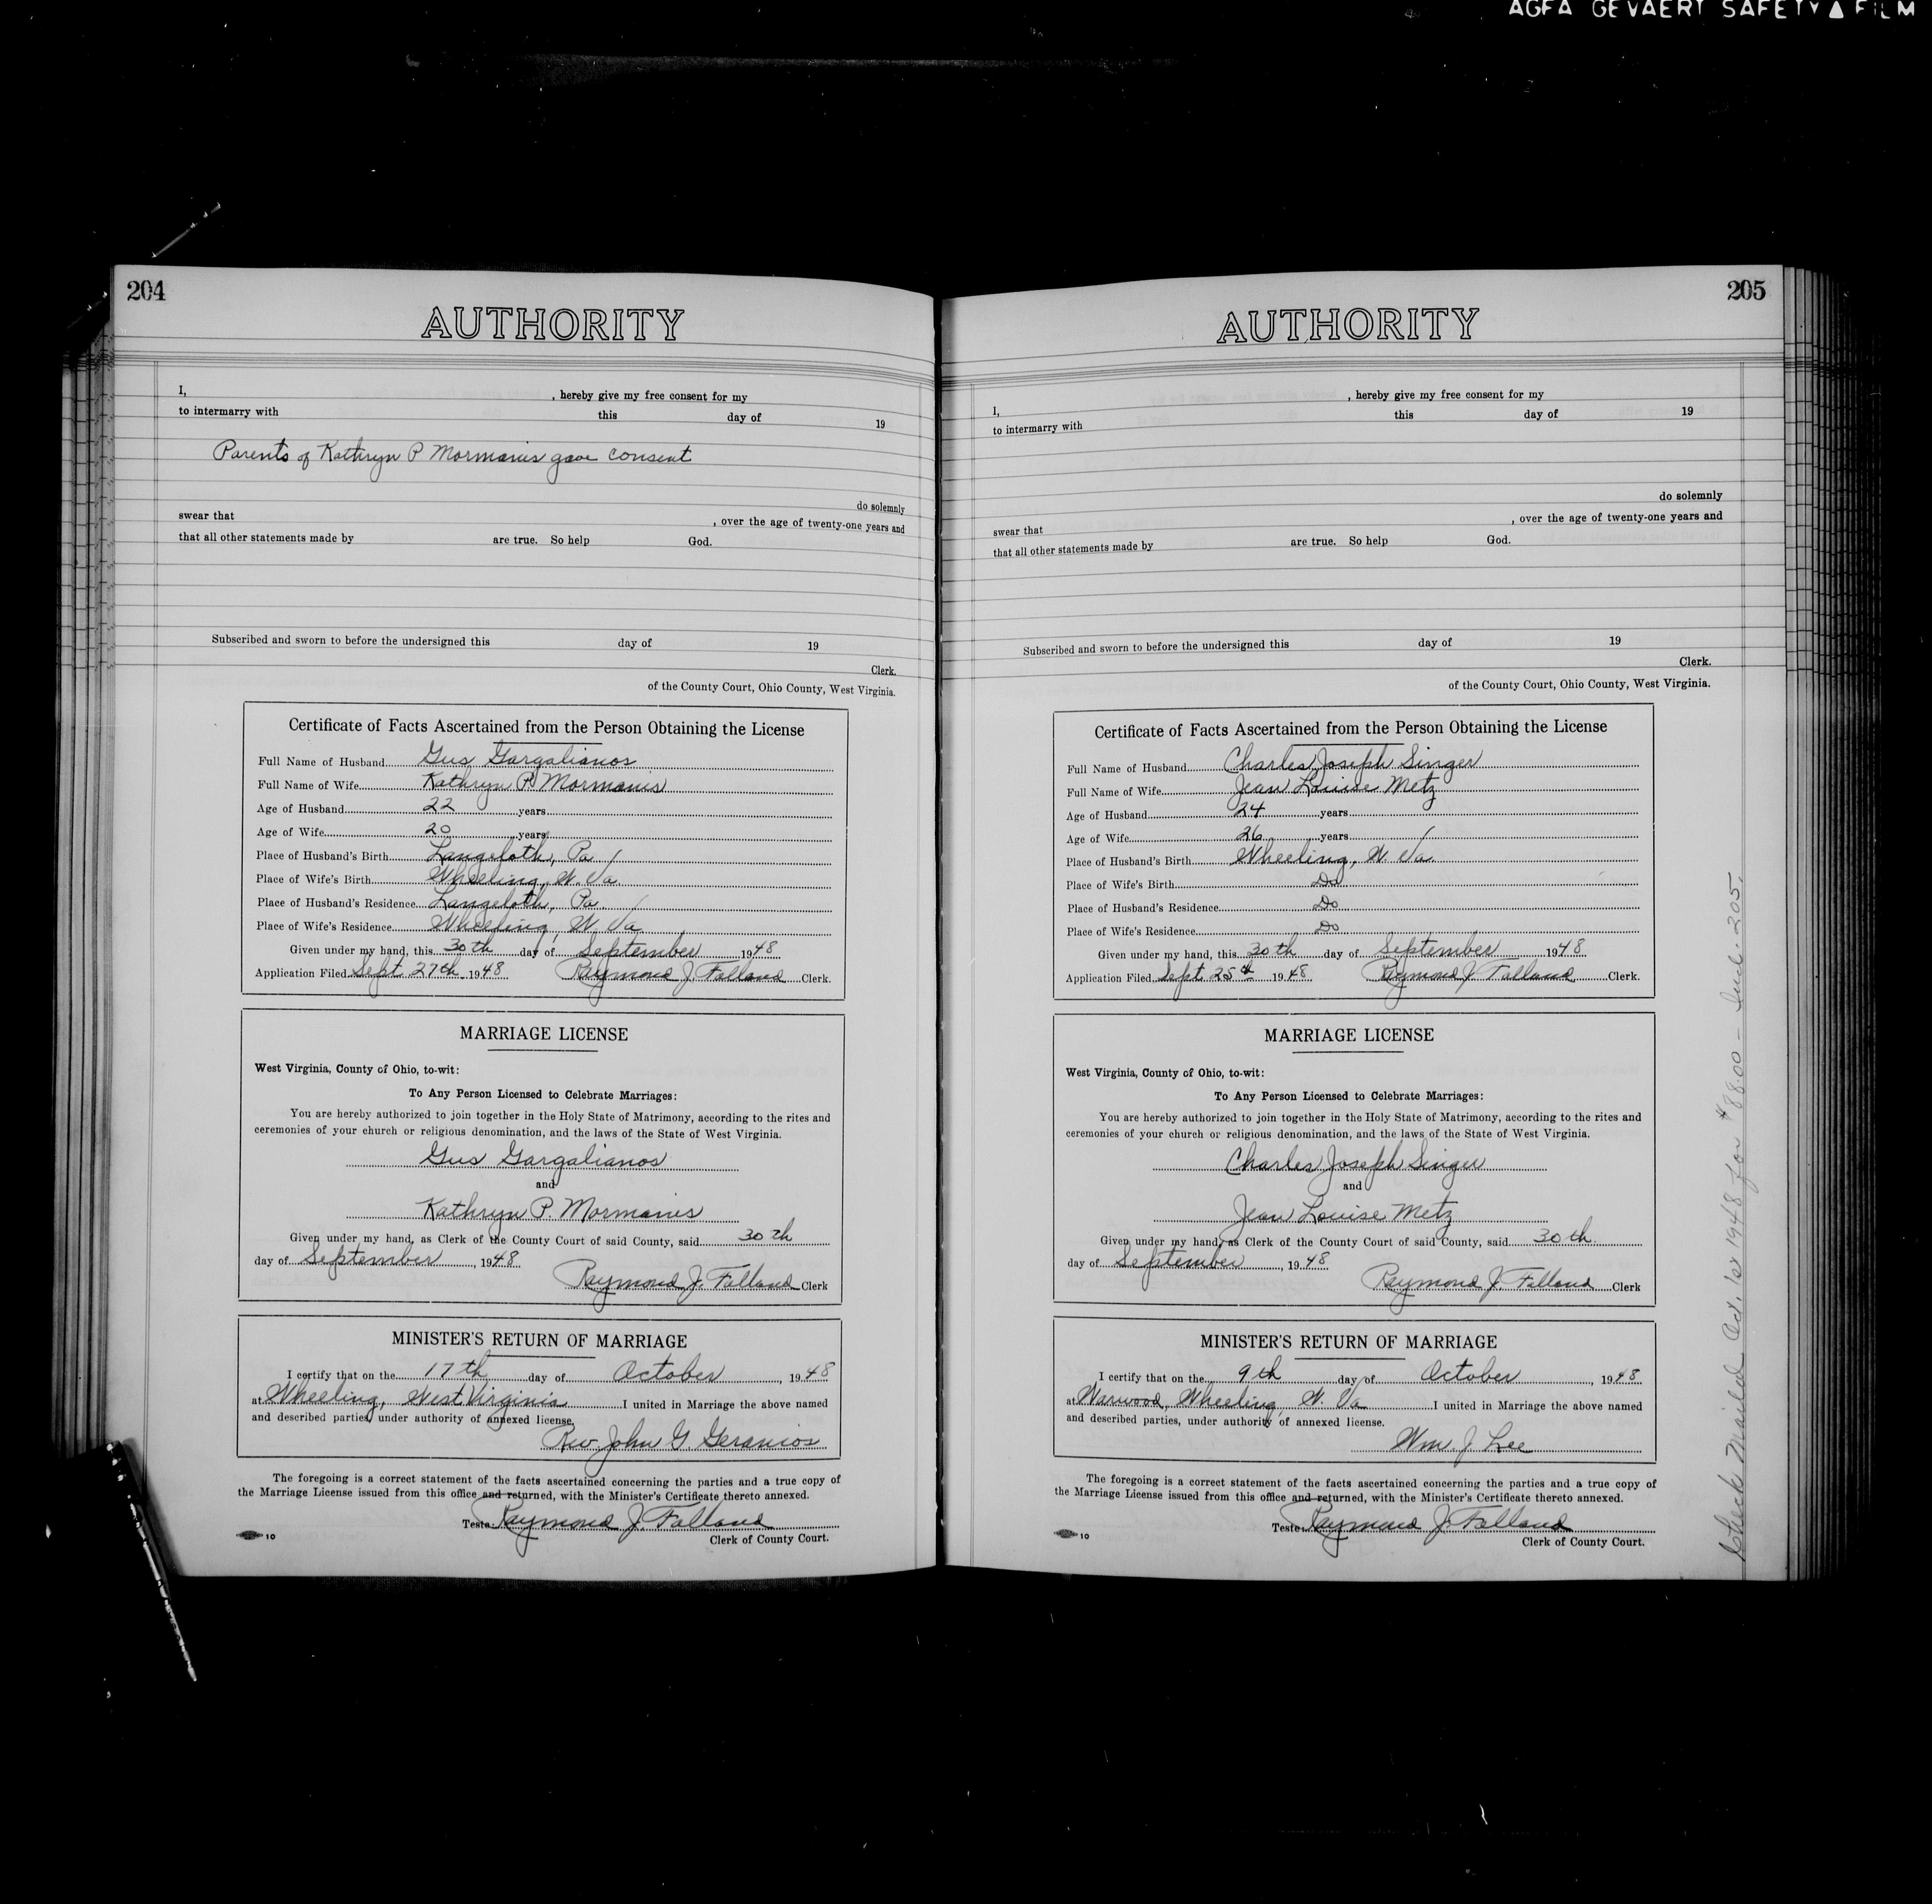 AGFA GEVAERT SAFETY ▲ FILM
204
AUTHORITY
I, , hereby give my free consent for my
to intermarry with this day of 19
Parents of Kathryn P Mormanis gave consent
do solemnly
swear that , over the age of twenty-one years and
that all other statements made by are true. So help God.
Subscribed and sworn to before the undersigned this day of 19
Clerk.
of the County Court, Ohio County, West Virginia.
Certificate of Facts Ascertained from the Person Obtaining the License
Full Name of Husband Gus Gargalianos
Full Name of Wife Kathryn P. Mormanis
Age of Husband 22 years
Age of Wife 20 years
Place of Husband's Birth Langeloth, Pa /
Place of Wife's Birth Wheeling, W. Va.
Place of Husband's Residence Langeloth, Pa. /
Place of Wife's Residence Wheeling, W. Va.
Given under my hand, this 30th day of September 1948
Application Filed Sept. 27th 1948 Raymond J. Falland Clerk.
MARRIAGE LICENSE
West Virginia, County of Ohio, to-wit:
To Any Person Licensed to Celebrate Marriages:
You are hereby authorized to join together in the Holy State of Matrimony, according to the rites and
ceremonies of your church or religious denomination, and the laws of the State of West Virginia.
Gus Gargalianos
and
Kathryn P. Mormanis
Given under my hand, as Clerk of the County Court of said County, said 30th
day of September, 1948
Raymond J. Falland Clerk
MINISTER'S RETURN OF MARRIAGE
I certify that on the 17th day of October, 1948
at Wheeling, West Virginia I united in Marriage the above named
and described parties, under authority of annexed license.
Rev. John G. Geranios
The foregoing is a correct statement of the facts ascertained concerning the parties and a true copy of
the Marriage License issued from this office and returned, with the Minister's Certificate thereto annexed.
Teste: Raymond J. Falland
10 Clerk of County Court.
205
AUTHORITY
I, , hereby give my free consent for my
to intermarry with this day of 19
do solemnly
swear that , over the age of twenty-one years and
that all other statements made by are true. So help God.
Subscribed and sworn to before the undersigned this day of 19
Clerk.
of the County Court, Ohio County, West Virginia.
Certificate of Facts Ascertained from the Person Obtaining the License
Full Name of Husband Charles Joseph Singer
Full Name of Wife Jean Louise Metz
Age of Husband 24 years
Age of Wife 26 years /
Place of Husband's Birth Wheeling, W. Va.
Place of Wife's Birth Do
Place of Husband's Residence Do
Place of Wife's Residence Do
Given under my hand, this 30th day of September 1948
Application Filed Sept 25th 1948 Raymond J. Falland Clerk.
MARRIAGE LICENSE
West Virginia, County of Ohio, to-wit:
To Any Person Licensed to Celebrate Marriages:
You are hereby authorized to join together in the Holy State of Matrimony, according to the rites and
ceremonies of your church or religious denomination, and the laws of the State of West Virginia.
Charles Joseph Singer
and
Jean Louise Metz
Given under my hand, as Clerk of the County Court of said County, said 30th
day of September, 1948
Raymond J. Falland Clerk
MINISTER'S RETURN OF MARRIAGE
I certify that on the 9th day of October, 1948
at Warwood, Wheeling, W. Va I united in Marriage the above named
and described parties, under authority of annexed license.
Wm. J. Lee
The foregoing is a correct statement of the facts ascertained concerning the parties and a true copy of
the Marriage License issued from this office and returned, with the Minister's Certificate thereto annexed.
Teste: Raymond J. Falland
10 Clerk of County Court.
Check Mailed Oct. 1st 1948 for $88.00 - Incl. 205.